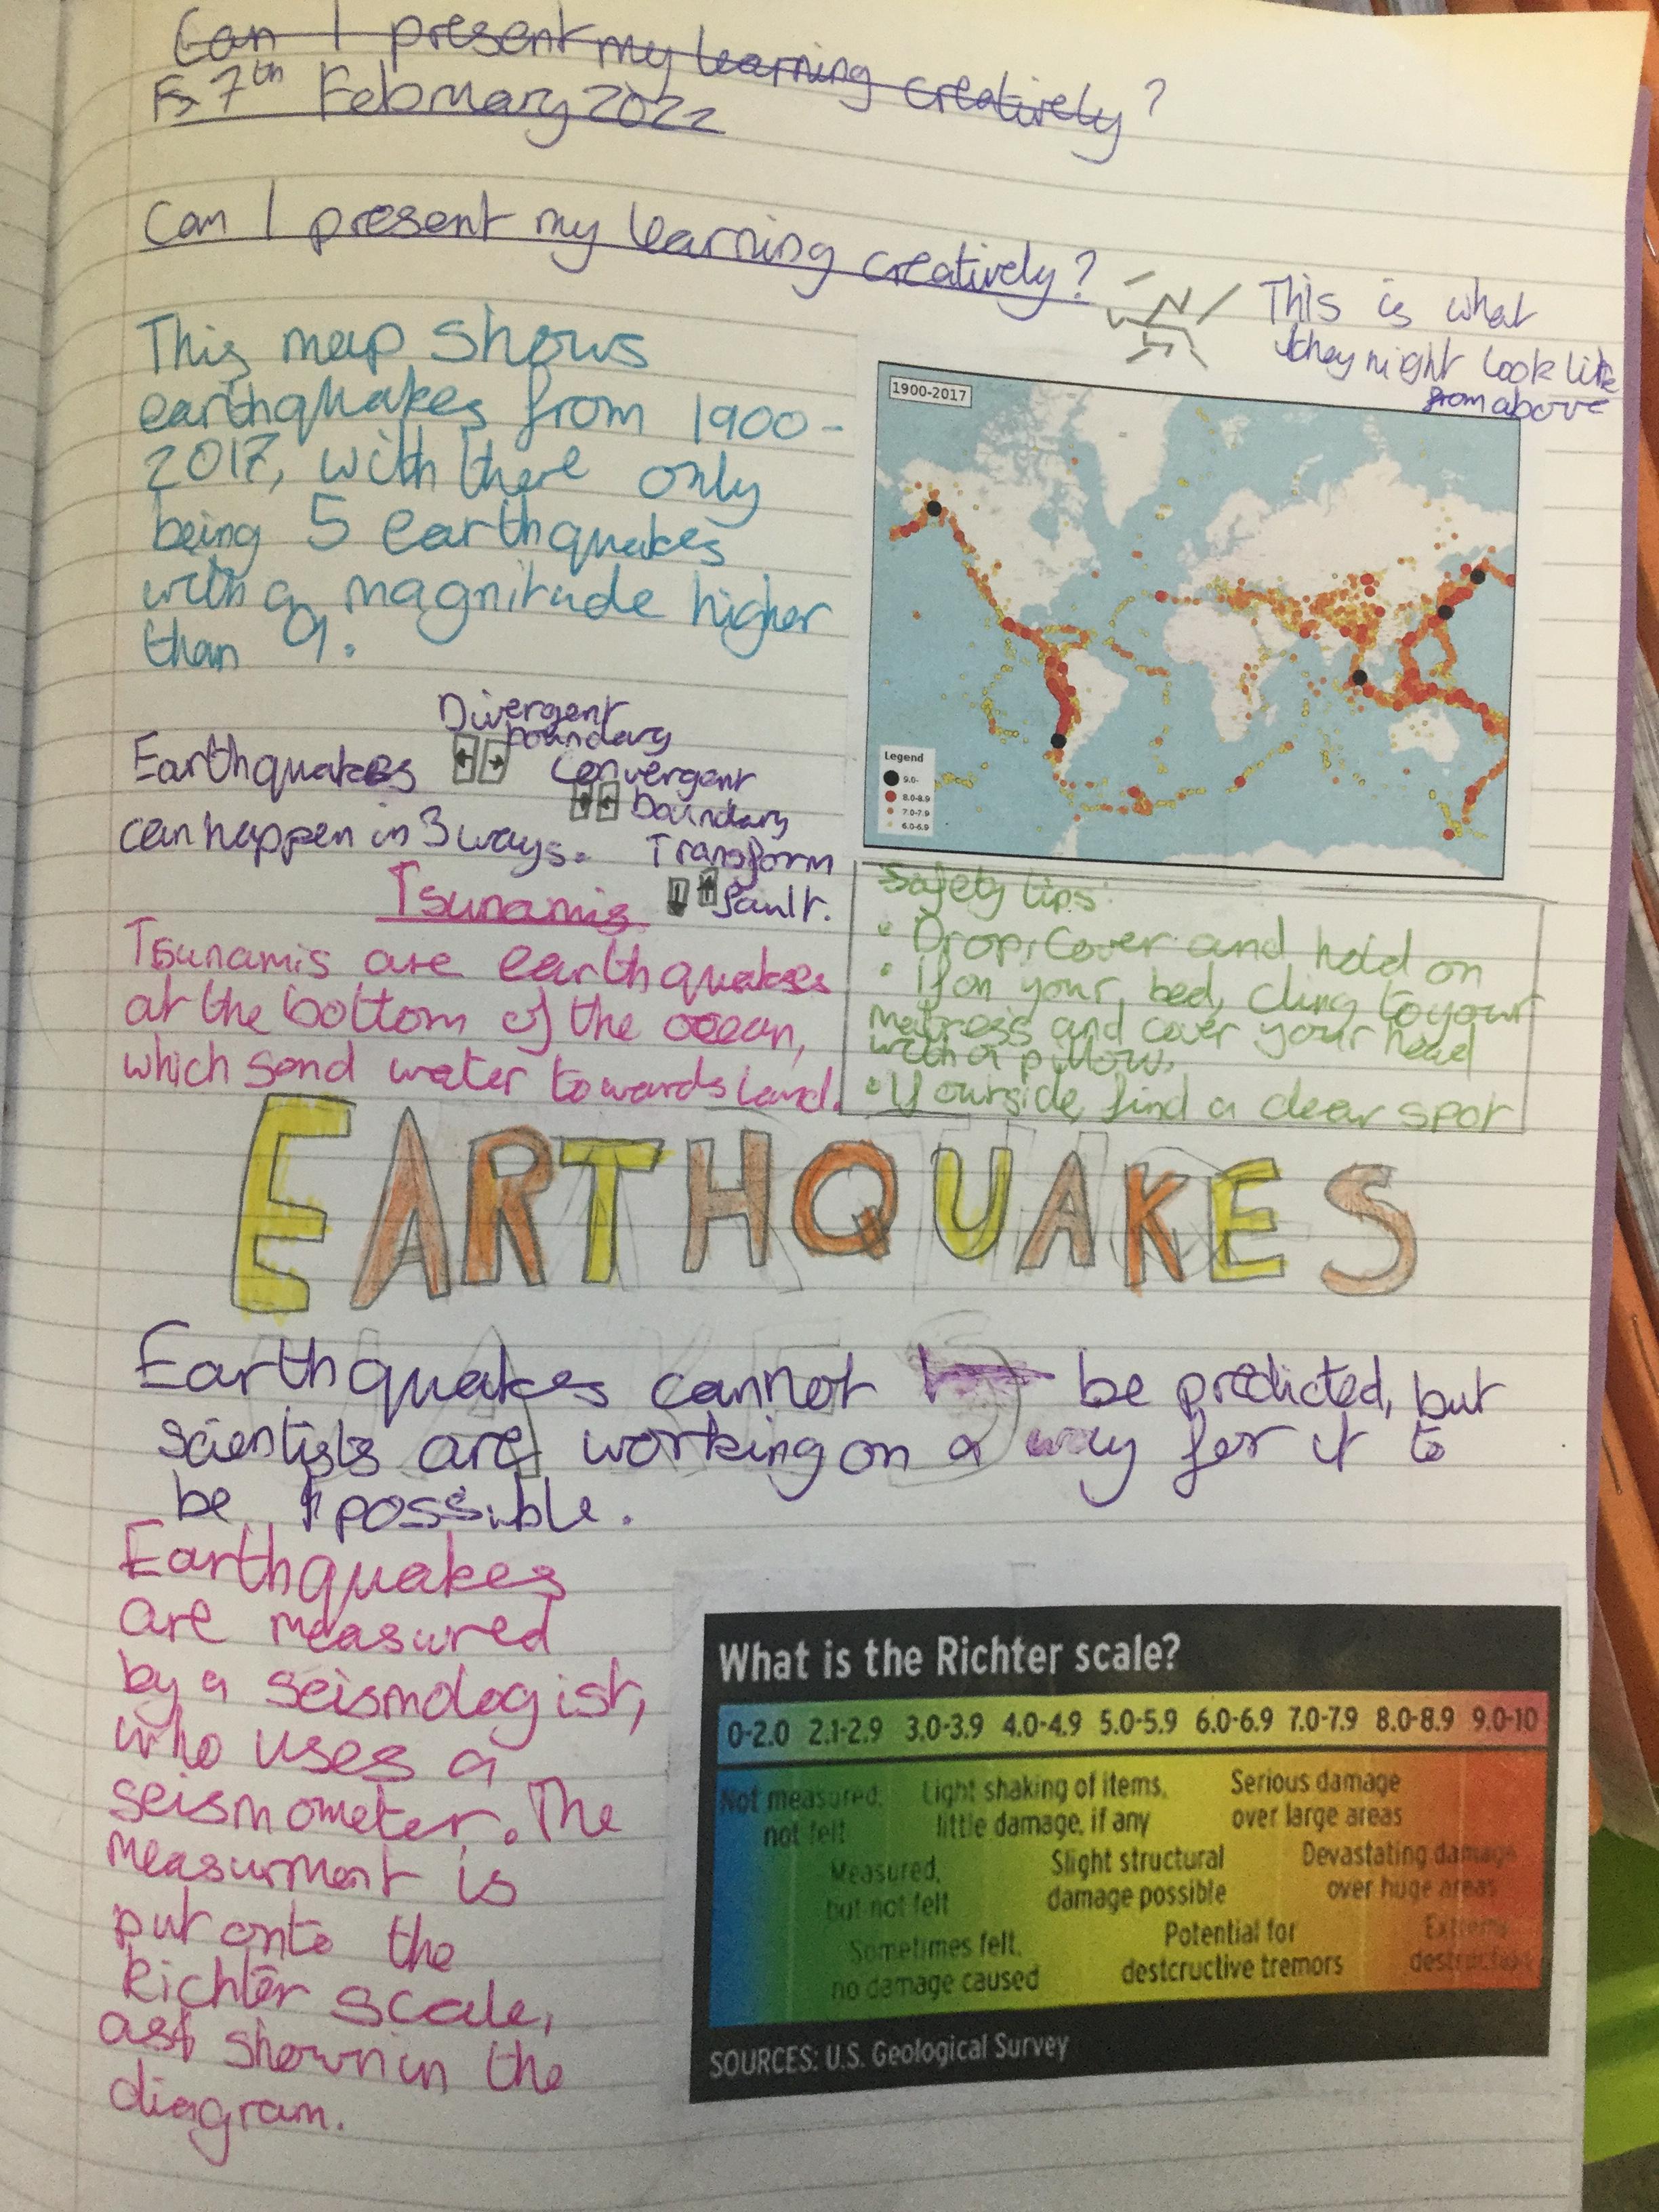 Can I present my learning creatively?
7th February 2022
Can I present my learning creatively?
This is what
they might look like
from above
This map shows
earthquakes from 1900-
2017, with there only
being 5 earthquakes
with a magnitude higher
than 9.
1900-2017
Legend
9.0-
8.0-8.9
7.0-7.9
6.0-6.9
Earthquakes
can happen in 3 ways.
Divergent
boundary
Convergent
boundary
Transform
fault.
Tsunamis
Tsunamis are earthquakes
at the bottom of the ocean,
which send water towards land.
Safety tips:
• Drop, Cover and hold on
• If on your bed, cling to your
matress and cover your head
with a pillow.
• If outside, find a clear spot
EARTHQUAKES
Earthquakes cannot be predicted, but
scientists are working on a way for it to
be possible.
Earthquakes
are measured
by a seismologist,
who uses a
seismometer. The
measurment is
put onto the
Richter scale,
as shown in the
diagram.
What is the Richter scale?
0-2.0 2.1-2.9 3.0-3.9 4.0-4.9 5.0-5.9 6.0-6.9 7.0-7.9 8.0-8.9 9.0-10
Not measured,
not felt
Light shaking of items,
little damage, if any
Serious damage
over large areas
Measured,
but not felt
Slight structural
damage possible
Devastating damage
over huge areas
Sometimes felt,
no damage caused
Potential for
destcructive tremors
Extreme
destruction
SOURCES: U.S. Geological Survey